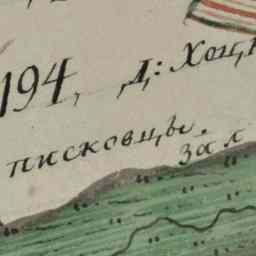 194, Д: Хоц
писковцы.
зал